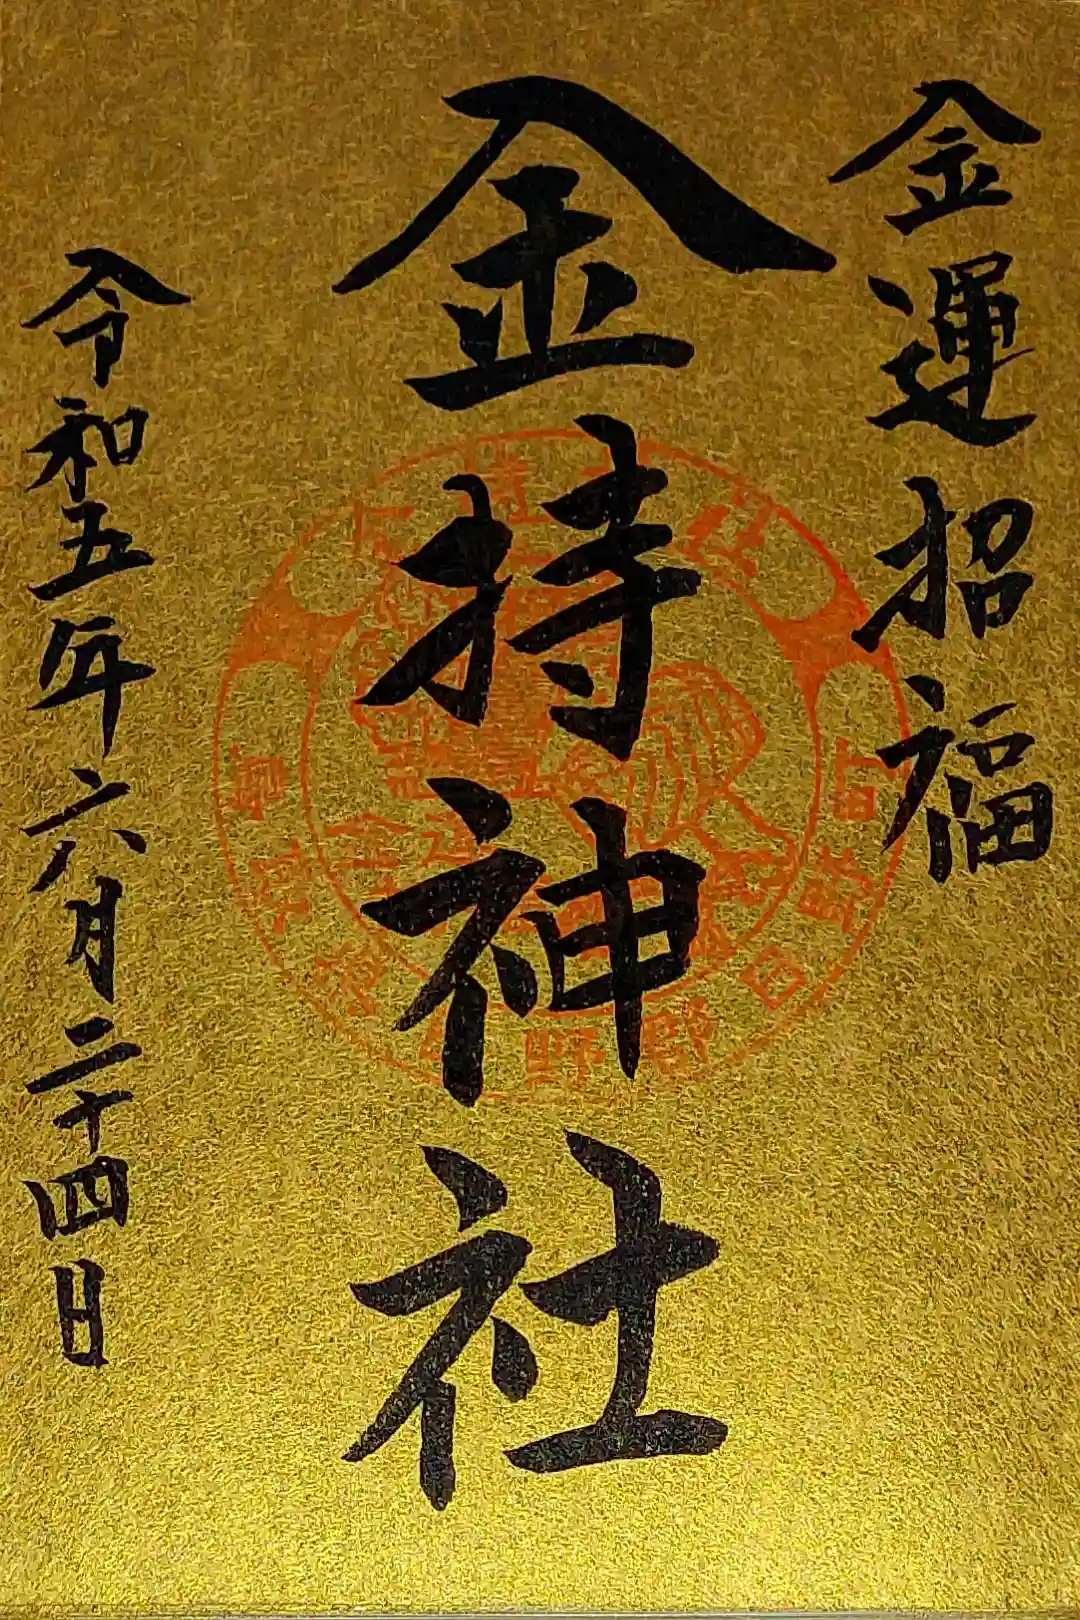 金運招福
金持神社
令和五年六月二十四日